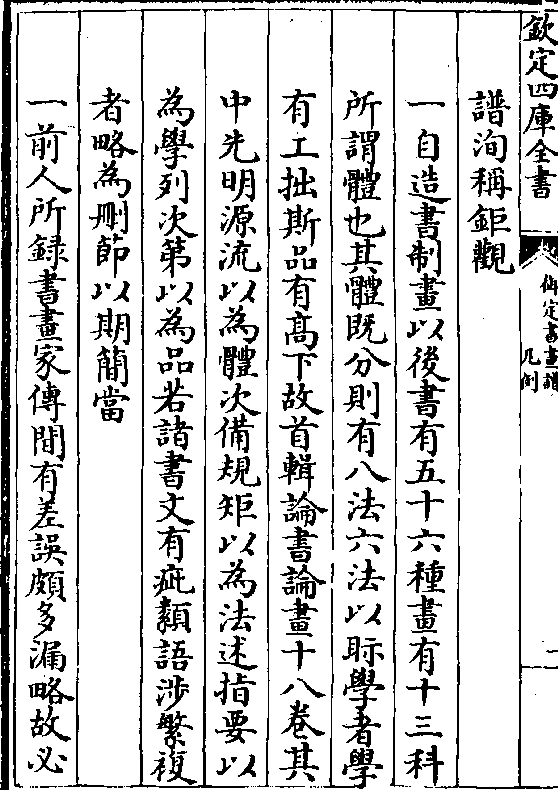 欽定四庫全書
御定書畫譜
凡例
譜洵稱鉅觀
一自造書制畫以後書有五十六種畫有十三科
所謂體也其體既分則有八法六法以眎學者學
有工拙斯品有髙下故首輯論書論畫十八卷其
中先明源流以為體次備規矩以為法述指要以
為學列次第以為品若諸書文有疵纇語涉繁複
者略為刪節以期簡當
一前人所錄書畫家傳間有差誤頗多漏略故必